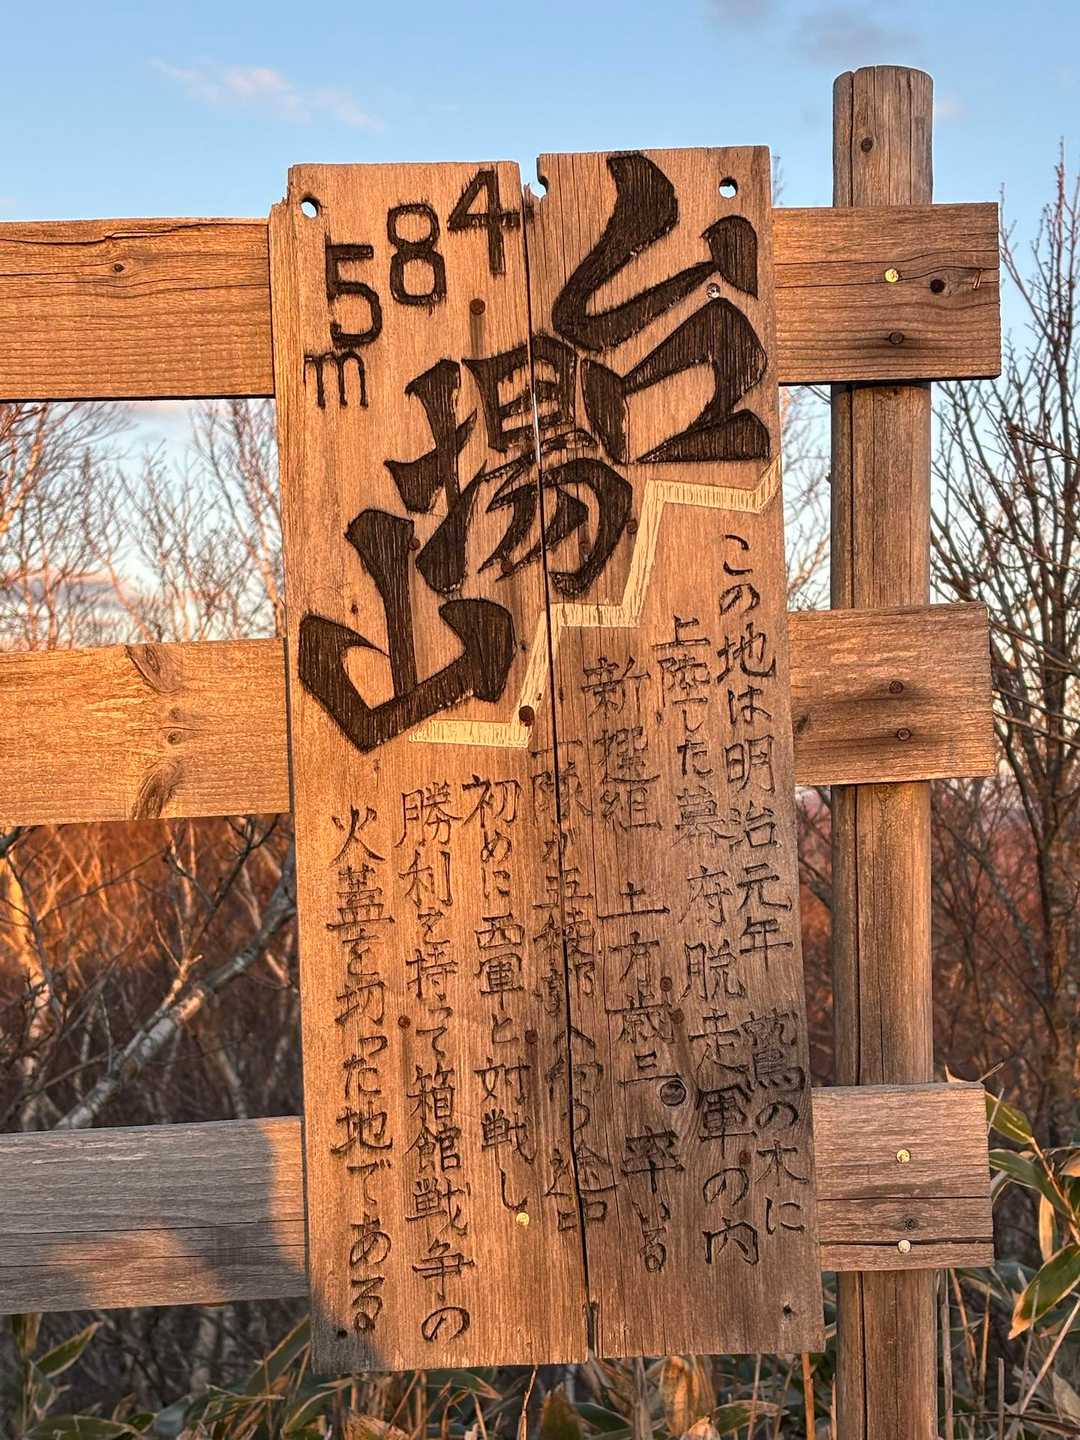 台場山
584.5m
この地は明治元年 鷲の木に
上陸した幕府脱走軍の内
新選組 土方歳三 率いる
一隊が五稜郭へ向う途中
初めに西軍と対戦し
勝利を持って箱館戦争の
火蓋を切った地である